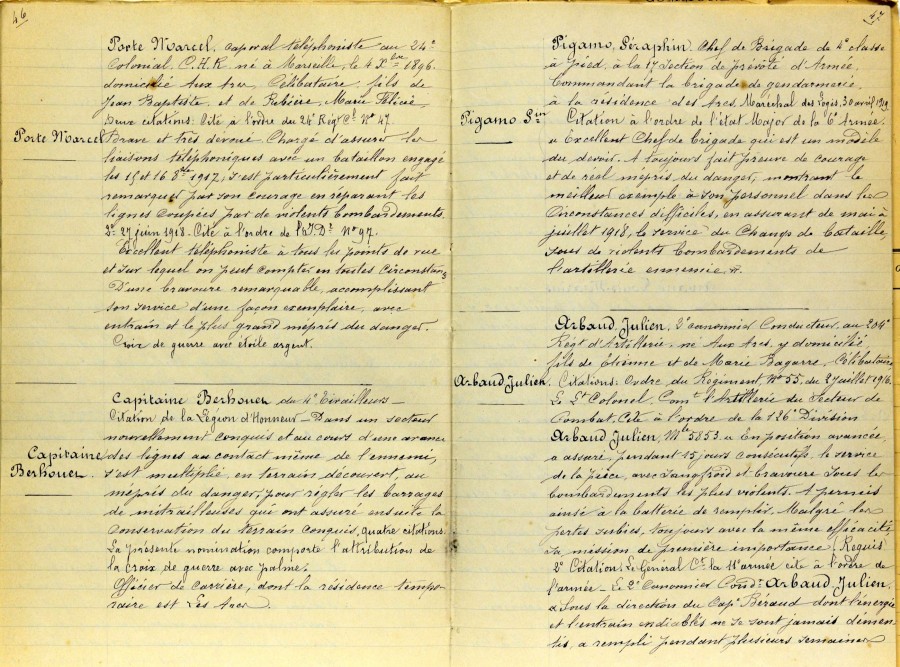 46
Porte Marcel, caporal téléphoniste au 24e
Colonial. C.H.R. né à Marseille, le 4 Xbre 1896.
domicilié aux Arcs, Célibataire, fils de
Jean Baptiste, et de Ribière, Marie Félicie.
Deux citations. Cité à l'ordre du 24e Régt Cl No 47.
Porte Marcel
Brave et très dévoué. Chargé d'assurer les
liaisons téléphoniques avec un bataillon engagé
les 15 et 16 8bre 1917, s'est particulièrement fait
remarquer par son courage en réparant les
lignes coupées par de violents bombardements.
2e 27 juin 1918. Cité à l'ordre de l'I.De No 97.
Excellent téléphoniste à tous les points de vue
et sur lequel on peut compter en toutes circonstances
D'une bravoure remarquable, accomplissant
son service d'une façon exemplaire, avec
entrain et le plus grand mépris du danger.
Croix de guerre avec étoile argent.
Capitaine Berhouer du 4e Tirailleurs_
Citation de la Légion d'Honneur _ Dans un secteur
nouvellement conquis et au cours d'une avance
Capitaine
Berhouer.
des lignes au contact même de l'ennemi,
s'est multiplié, en terrain découvert, au
mépris du danger, pour régler les barrages
de mitrailleuses qui ont assuré ensuite la
conservation du terrain conquis, quatre citations.
La présente nomination comporte l'attribution de
la croix de guerre avec palme.
Officier de carrière, dont la résidence tempo-
raire est Les Arcs
47
Pigamo, Séraphin. Chef de Brigade de 4e classe
à pied, à la 17 Section de prévôté d'Armée,
Commandant la brigade de gendarmerie,
à la résidence des Arcs. Maréchal des logis, 30 avril 1919
Pigamo Sin
Citation à l'ordre de l'état Major de la 6e Armée.
« Excellent Chef de brigade qui est un modèle
du devoir. A toujours fait preuve de courage
et de réel mépris du danger, montrant le
meilleur exemple à son personnel dans les
circonstances difficiles, en assurant de mai à
juillet 1918, le service du Champ de bataille,
sous de violents bombardements de
l'artillerie ennemie ».
Arbaud, Julien, 2e canonnier Conducteur, au 204e
Régt d'Artillerie, né Aux Arcs, y domicilié,
fils de Etienne et de Marie Bagarre, Célibataire
Arbaud Julien.
Citations. Ordre du Régiment, No 55, du 2 juillet 1916.
Le Lt Colonel, Comt l'Artillerie du Secteur de
Combat, Cite à l'ordre de la 126e Division
Arbaud, Julien, Mle 5853. « En position avancée,
a assuré, pendant 15 jours consécutifs, le service
de la pièce, avec sangfroid et bravoure sous les
bombardements les plus violents. A permis
ainsi à la batterie de remplir, malgré les
pertes subies, toujours avec la même efficacité,
sa mission de première importance (Requis)
2e Citation. Le Général Ct la 11e armée cite à l'ordre de
l'armée _ Le 2e Canonnier Condr Arbaud, Julien.
« Sous la direction du Capne Béraud dont l'énergie
et l'entrain endiablés ne se sont jamais démen-
tis, a rempli pendant plusieurs semaines